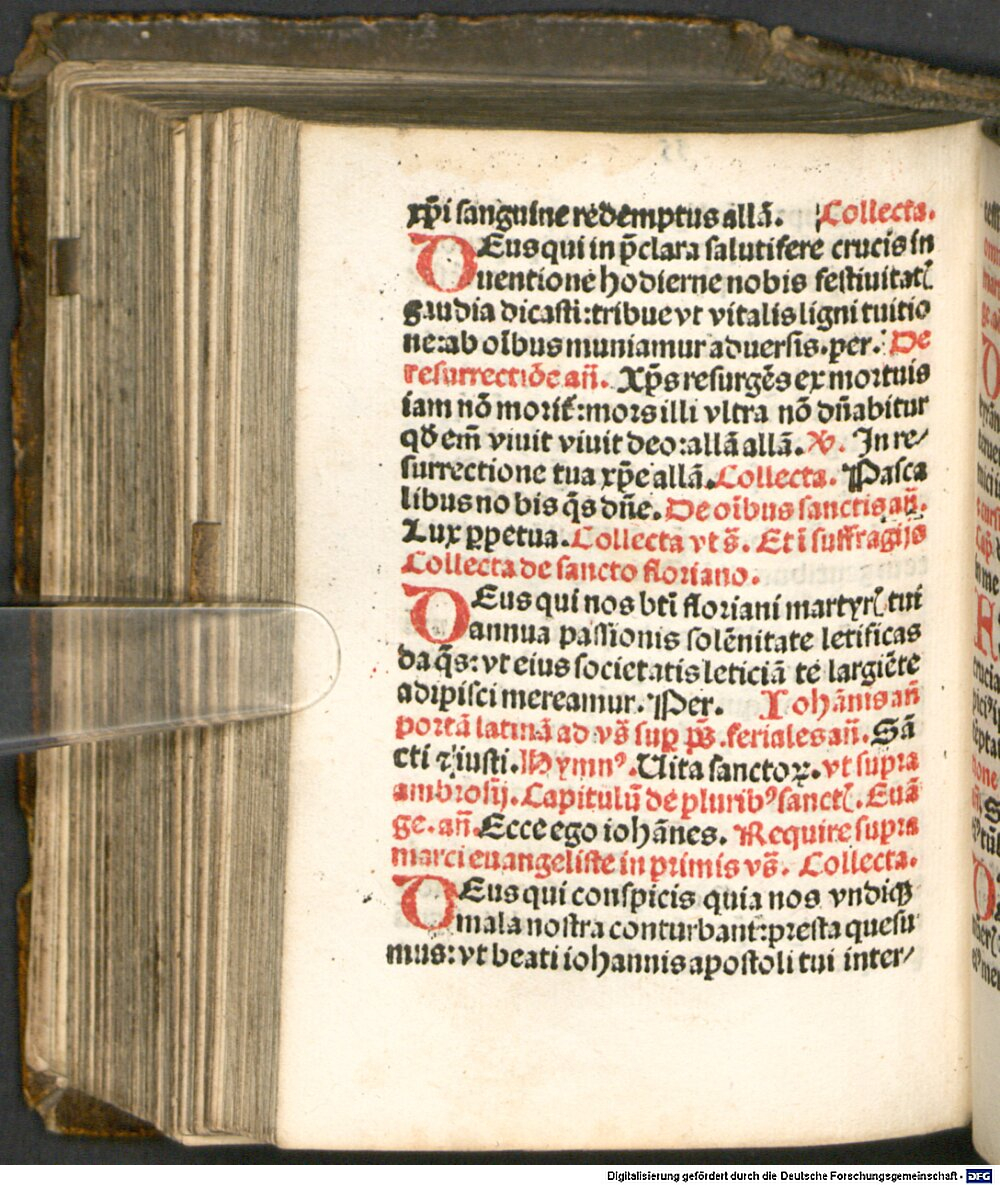 xp̄i sanguine redemptus allā. Collecta.
DEus qui in p̄clara salutifere crucis in
uentione hodierne nobis festiuitatꝭ
gaudia dicasti: tribue vt vitalis ligni tuitio
ne: ab oībus muniamur aduersis. per. De
resurrectiōe añ. Xp̄s resurgēs ex mortuis
iam nō morit᷑: mors illi vltra nō dñabitur
qd̄ em̄ viuit viuit deo: allā allā. ℣. In re/
surrectione tua xp̄e allā. Collecta. Pasca
libus nobis q̄s dn̄e. De oībus sanctis añ.
Lux ꝑpetua. Collecta vt s̄. Et ī suffragijs
Collecta de sancto floriano.
DEus qui nos bt̄i floriani martyrꝭ tui
annua passionis solēnitate letificas
da q̄s: vt eius societatis leticiā te largiēte
adipisci mereamur. Per. Iohānis añ
portā latinā ad vs̄ suꝑ ps̄. feriales añ. Sā
cti ⁊ iusti. Hymnꝰ. Uita sanctoꝝ. vt supra
ambrosij. Capitulū de pluribꝰ sanctꝭ. Euā
ge. añ. Ecce ego iohānes. Require supra
marci euangeliste in primis vs̄. Collecta.
DEus qui conspicis quia nos vndiqꝫ
mala nostra conturbant: presta quesu
mus: vt beati iohannis apostoli tui inter/
Digitalisierung gefördert durch die Deutsche Forschungsgemeinschaft - DFG